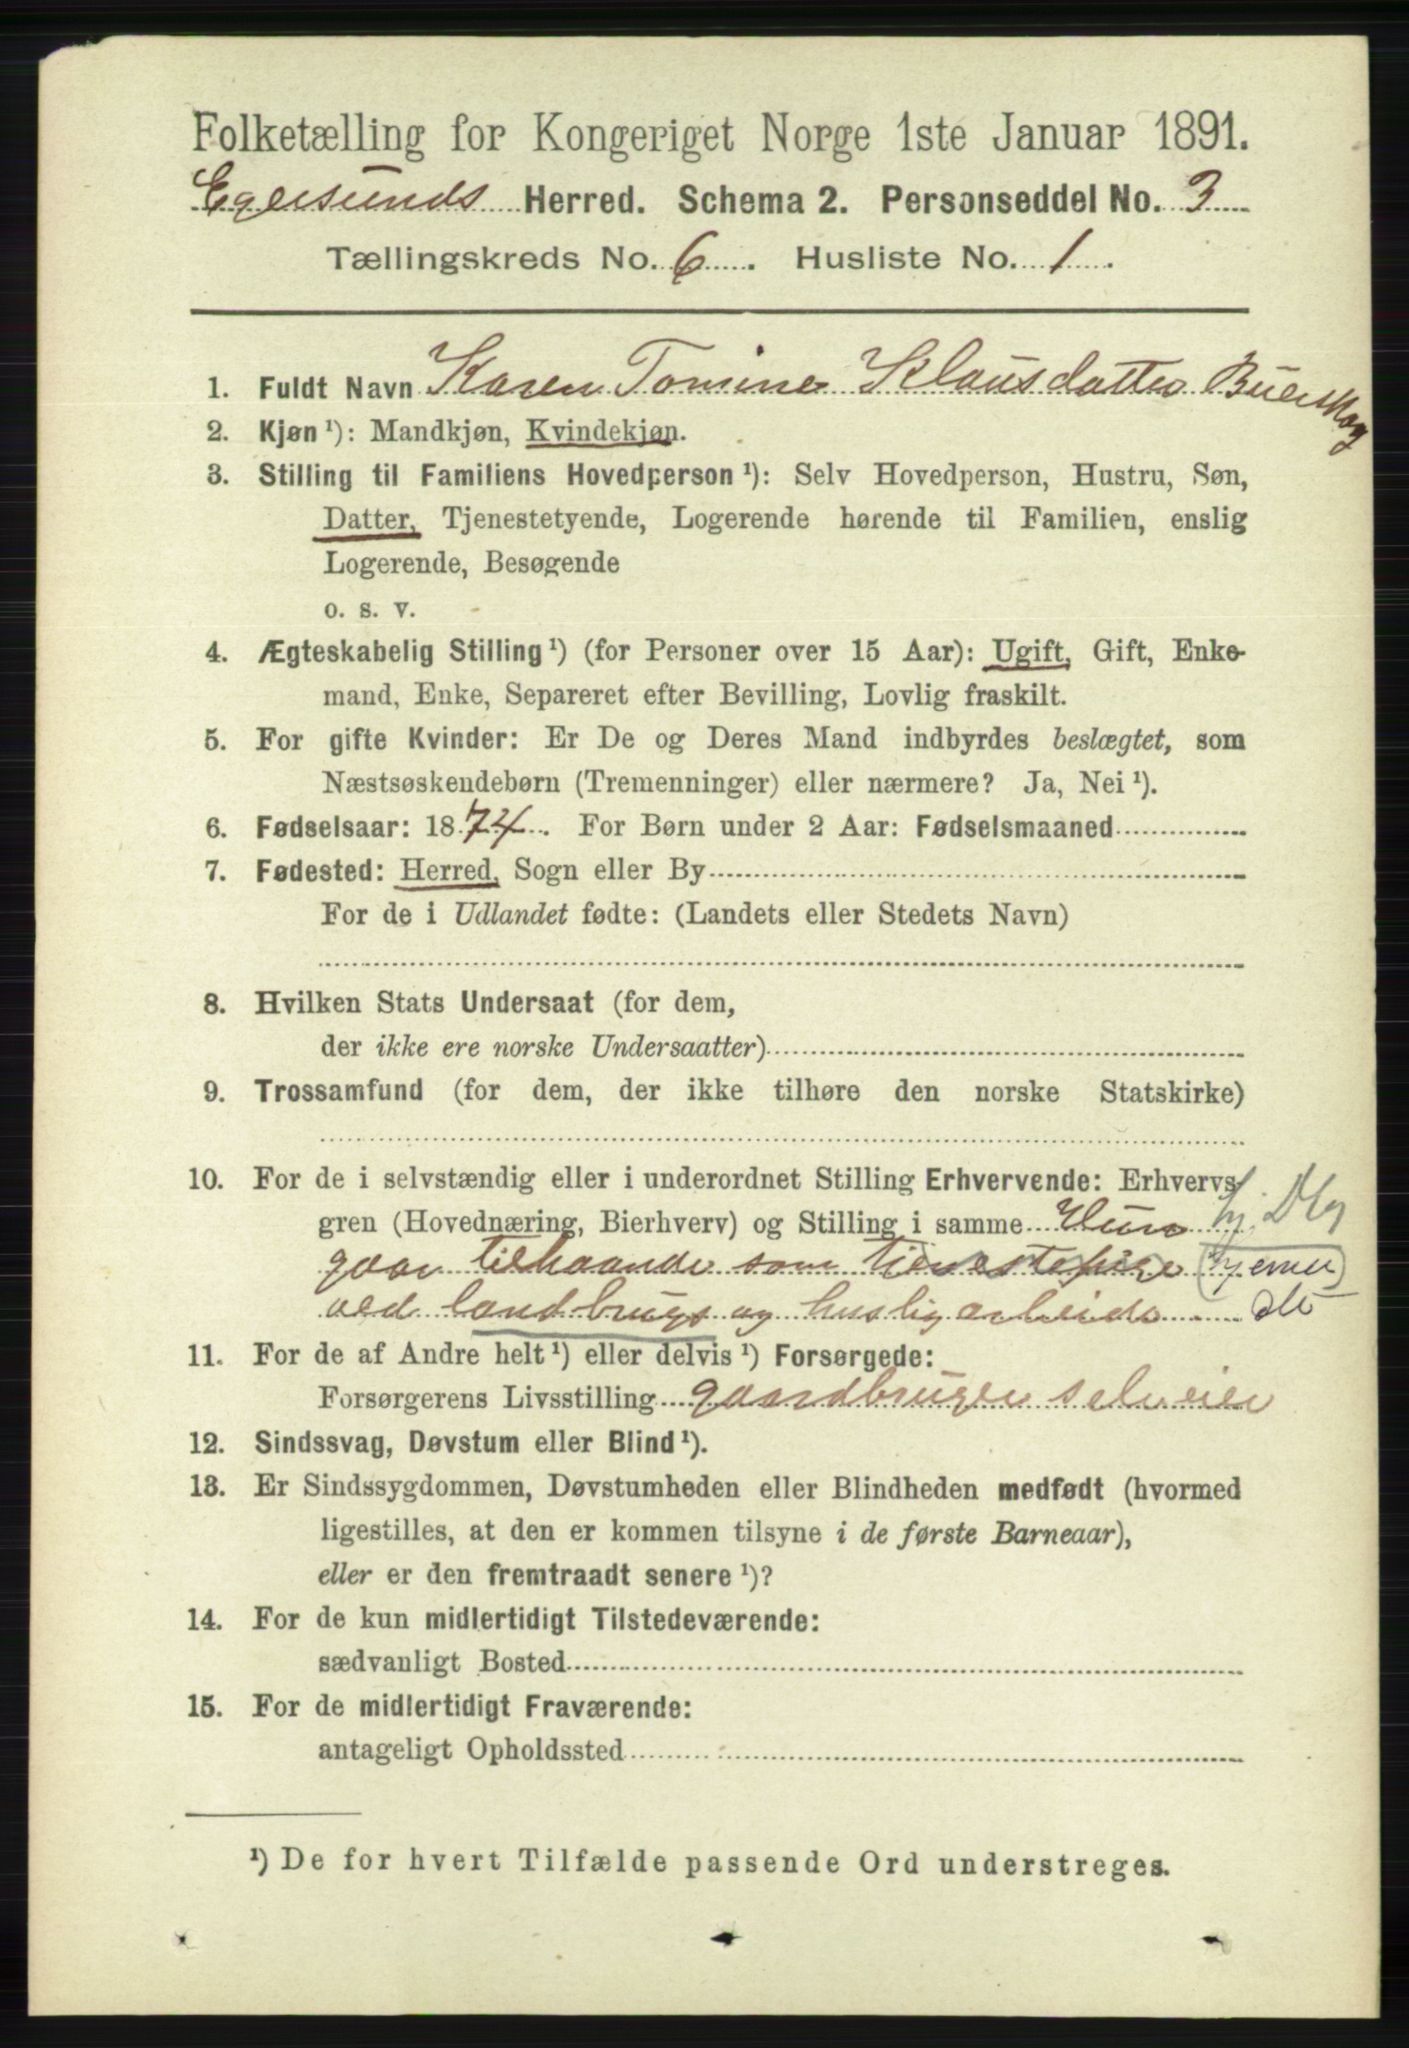 Folketælling for Kongeriget Norge 1ste Januar 1891.
Egersunds Herred. Schema 2. Personseddel No. 3
Tællingskreds No. 6. Husliste No. 1.
1. Fuldt Navn Karen Tomine Klausdatter Buerskog
2. Kjøn ¹): Mandkjøn, Kvindekjøn.
3. Stilling til Familiens Hovedperson ¹): Selv Hovedperson, Hustru, Søn,
Datter, Tjenestetyende, Logerende hørende til Familien, enslig
Logerende, Besøgende
o. s. v.
4. Ægteskabelig Stilling ¹) (for Personer over 15 Aar): Ugift, Gift, Enke-
mand, Enke, Separeret efter Bevilling, Lovlig fraskilt.
5. For gifte Kvinder: Er De og Deres Mand indbyrdes beslægtet, som
Næstsøskendebørn (Tremenninger) eller nærmere? Ja, Nei ¹).
6. Fødselsaar: 1874. For Børn under 2 Aar: Fødselsmaaned
7. Fødested: Herred, Sogn eller By
For de i Udlandet fødte: (Landets eller Stedets Navn)
8. Hvilken Stats Undersaat (for dem,
der ikke ere norske Undersaatter)
9. Trossamfund (for dem, der ikke tilhøre den norske Statskirke)
10. For de i selvstændig eller i underordnet Stilling Erhvervende: Erhvervs-
gren (Hovednæring, Bierhverv) og Stilling i samme Hun
gaar tilhaande som tienestepige hjemme
ved landbrugs og huslig arbeide
11. For de af Andre helt ¹) eller delvis ¹) Forsørgede:
Forsørgerens Livsstilling gaardbruger selveier
12. Sindssvag, Døvstum eller Blind ¹).
13. Er Sindssygdommen, Døvstumheden eller Blindheden medfødt (hvormed
ligestilles, at den er kommen tilsyne i de første Barneaar),
eller er den fremtraadt senere ¹)?
14. For de kun midlertidigt Tilstedeværende:
sædvanligt Bosted
15. For de midlertidigt Fraværende:
antageligt Opholdssted
¹) De for hvert Tilfælde passende Ord understreges.